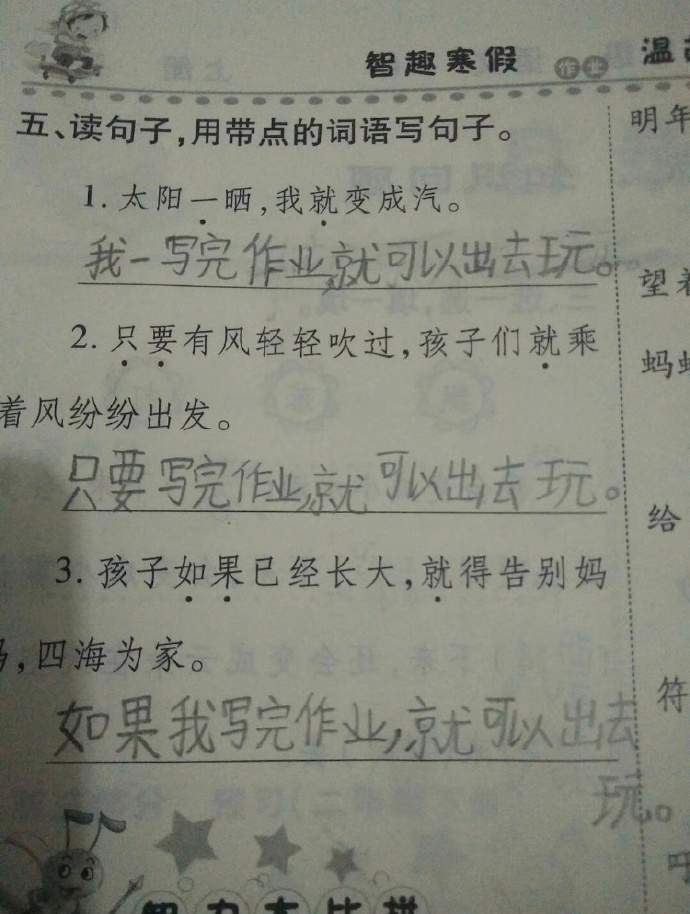 智趣寒假 作业 温
五、读句子,用带点的词语写句子。
1. 太阳一晒,我就变成汽。
我一写完作业,就可以出去玩。
2. 只要有风轻轻吹过,孩子们就乘
着风纷纷出发。
只要写完作业,就可以出去玩。
3. 孩子如果已经长大,就得告别妈
妈,四海为家。
如果我写完作业,就可以出去
玩。
明年
望着
蚂
给
符